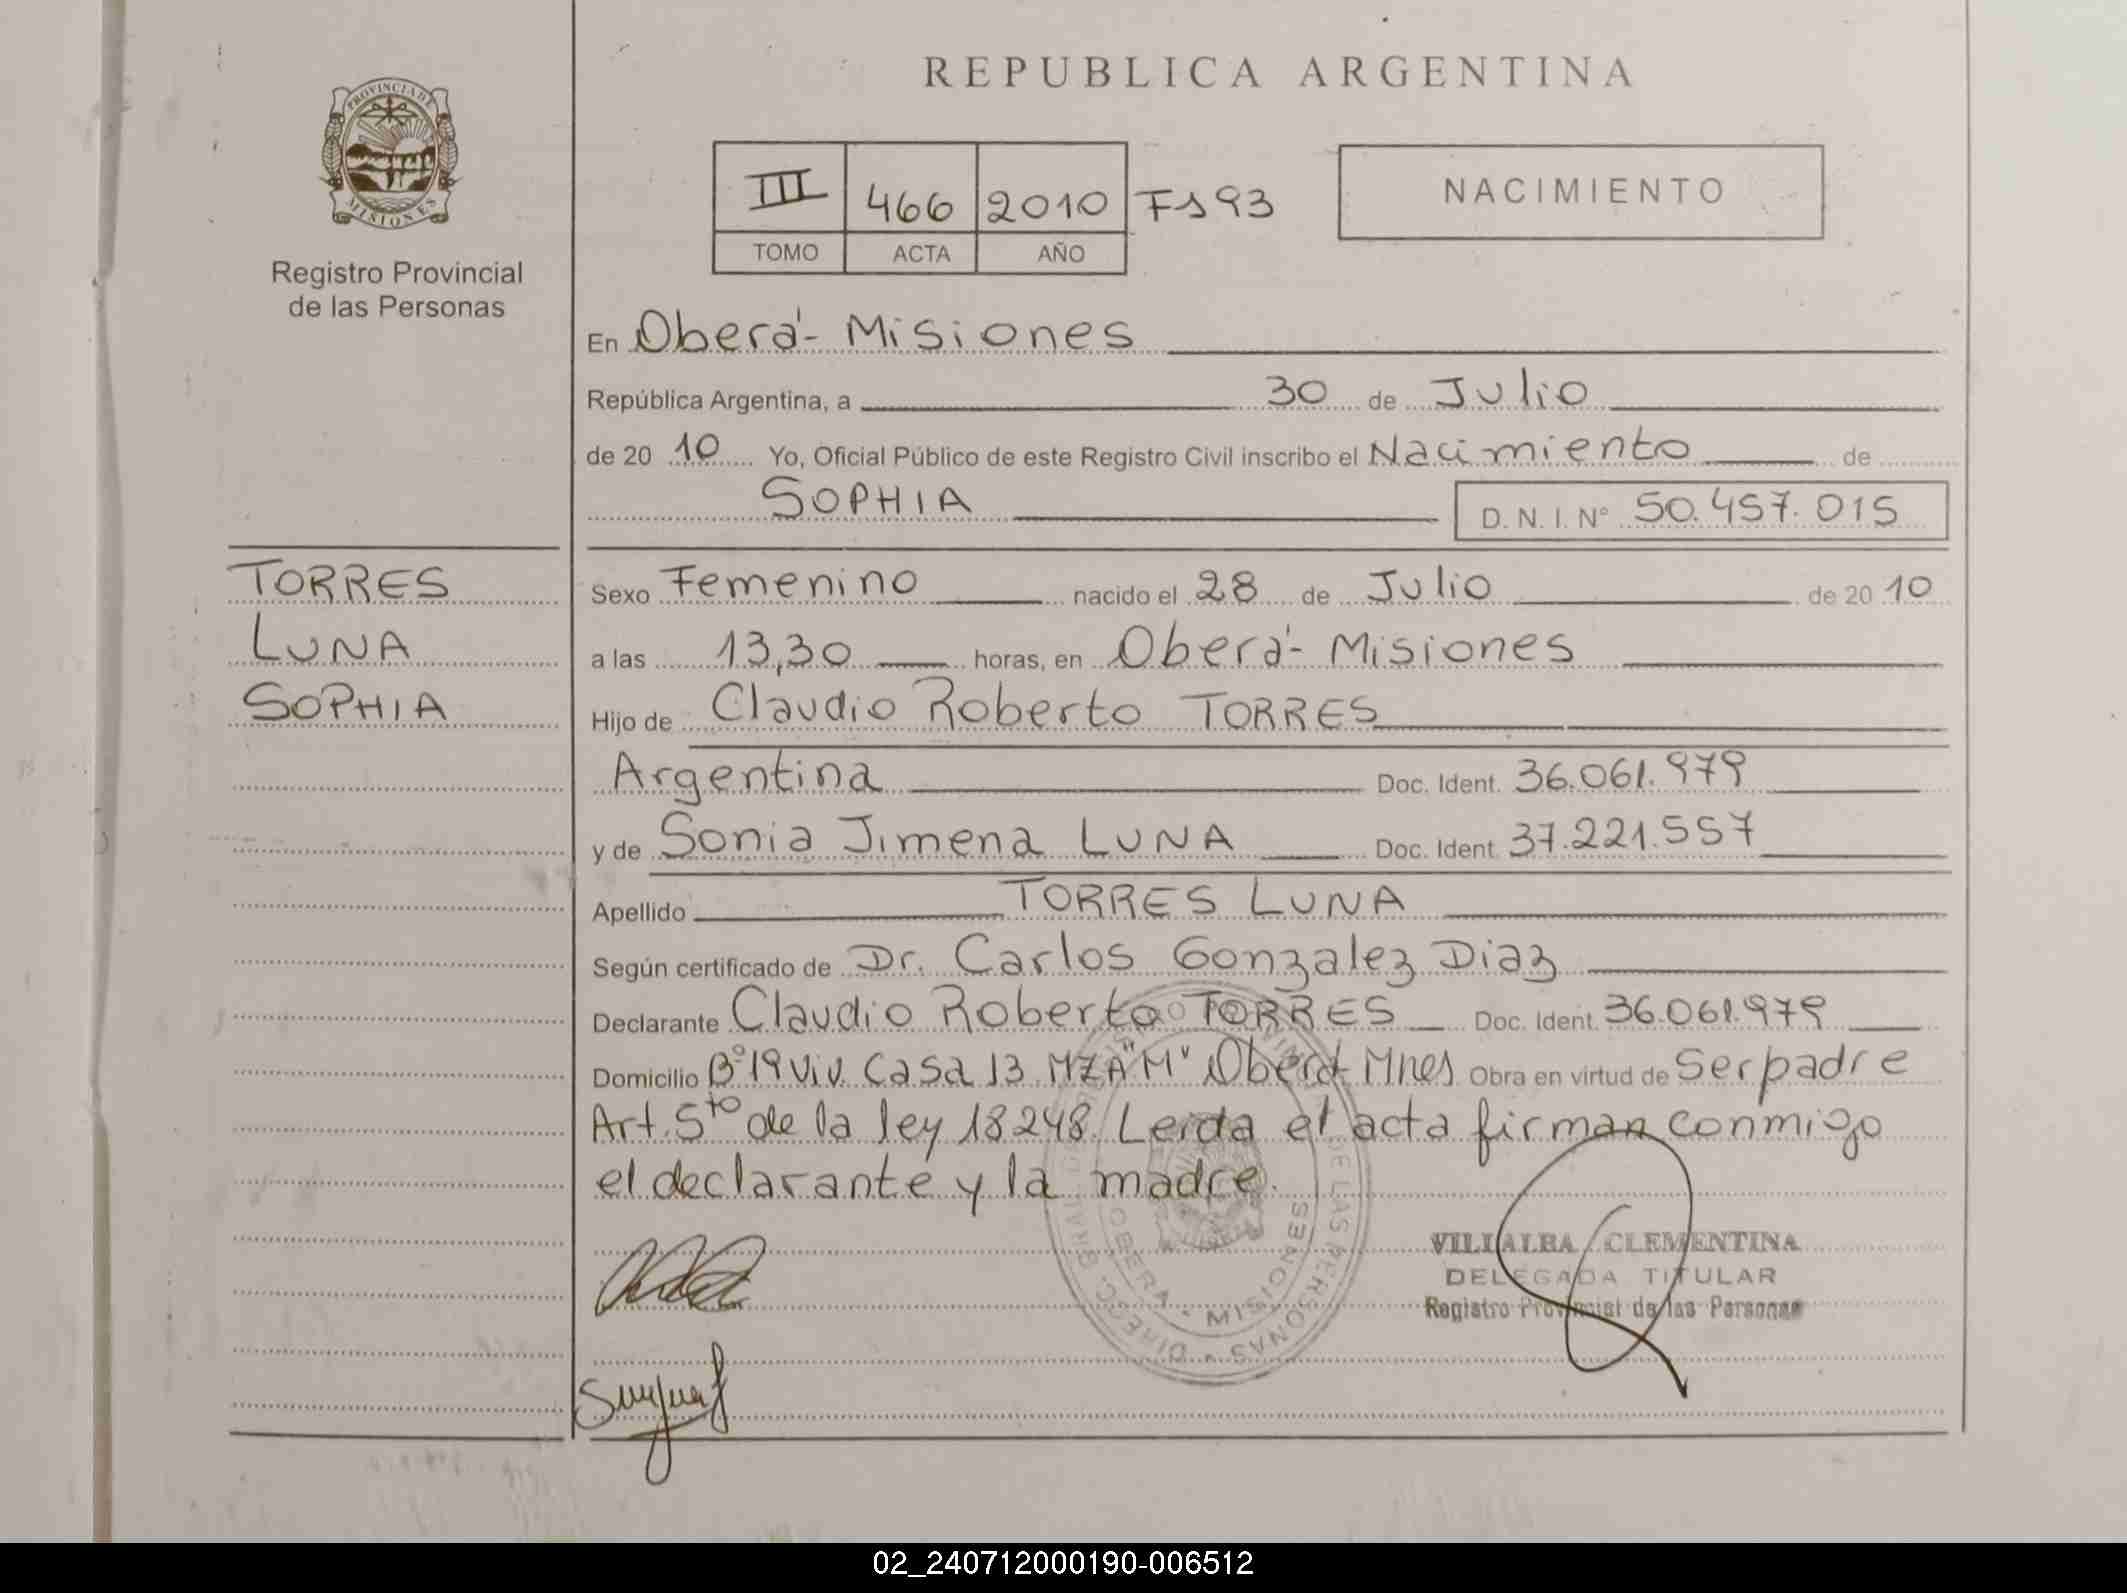 REPUBLICA ARGENTINA
PROVINCIA DE MISIONES
Registro Provincial
de las Personas
III 466 2010 Fs 93
TOMO ACTA AÑO
NACIMIENTO
En Oberá - Misiones
República Argentina, a 30 de Julio
de 20 10 Yo, Oficial Público de este Registro Civil inscribo el Nacimiento de
SOPHIA D. N. I. Nº 50.457.015
TORRES
LUNA
SOPHIA
Sexo Femenino nacido el 28 de Julio de 20 10
a las 13,30 horas, en Oberá - Misiones
Hijo de Claudio Roberto TORRES
Argentina Doc. Ident. 36.061.979
y de Sonia Jimena LUNA Doc. Ident. 37.221.557
Apellido TORRES LUNA
Según certificado de Dr. Carlos Gonzalez Diaz
Declarante Claudio Roberto TORRES Doc. Ident. 36.061.979
Domicilio Bº 19 Viv. Casa 13 MZA "M" Oberá - Mnes Obra en virtud de Ser padre
Art. 5to de la ley 18248. Leida el acta firman conmigo
el declarante y la madre.
OBERA - MISIONES
DE LAS PERSONAS
VILLALBA CLEMENTINA
DELEGADA TITULAR
Registro Provincial de las Personas
02_240712000190-006512